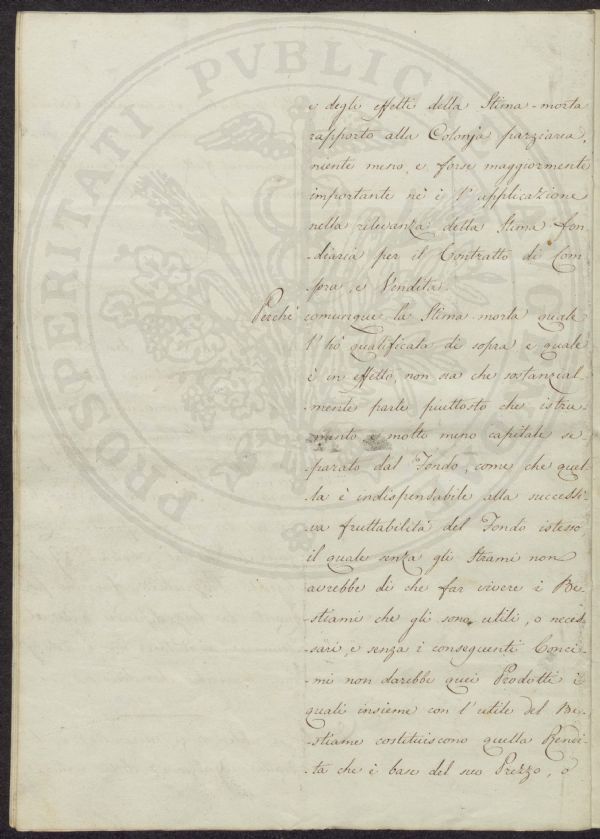 e degli effetti della Stima-morta
rapporto alla Colonja parziarea,
niente meno, e forse maggiormente
importante nè è l'applicazione
nella rilevanza della Stima fon-
-diaria per il Contratto di Com
-pra, e Vendita.
Perchè comunque la Stima-morta quale
l'hò qualificata di sopra e quale
è in effetto, non sia che sostanzial-
-mente parte piuttosto che istru-
-mento e molto meno capitale se-
-parato dal Fondo, come che quel-
-la è indispensabile alla successi-
-va fruttabilità del Fondo istesso,
il quale senza gli Strami non
avrebbe di che far vivere i Be-
-stiami che gli sono utili, o neces-
-sari, e senza i conseguenti Conci-
-mi non darebbe quei Prodotti i
quali insieme con l'utile del Be-
-stiame costituiscono quella Rendi-
-ta che è base del suo Prezzo, o
PROSPERITATI PVBLIC